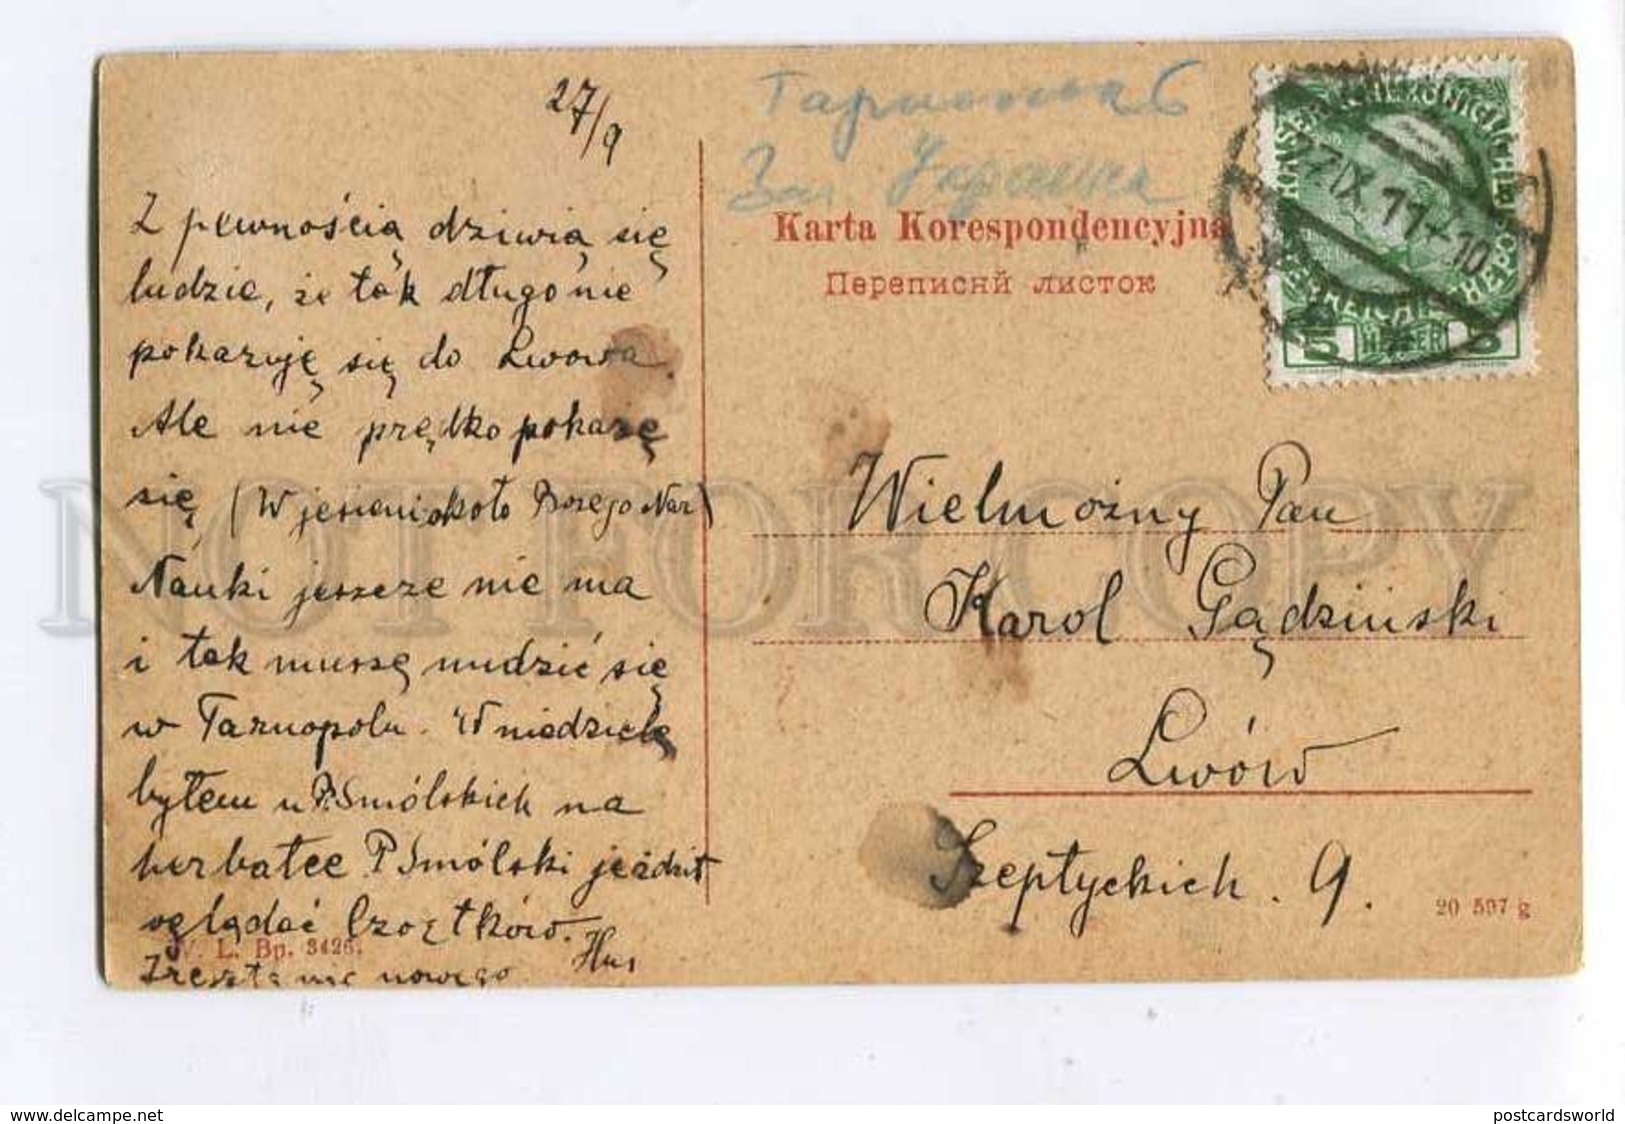 27/9
Z pewnością dziwią się
ludzie, że tak długo nie
pokazuję się do Lwowa.
Ale nie prędko pokażę
się (W jesieni około Bożego Nar)
Nauki jeszcze nie ma
i tak muszę nudzić się
w Tarnopolu. W niedzielę
byłem u P. Smólskich na
herbatce P Smólski jeździł
oglądać Czortków.
Zresztą nic nowego
W. L. Bp. 3426.
Зап. Украина
Karta Korespondencyjna
Переписнй листок
27 IX 11 10
5 HELLER 5
Wielmożny Pan
Karol Gądziński
Lwów
Szeptyckich. 9.
20 597 g
NOT FOR COPY
www.delcampe.net
postcardsworld